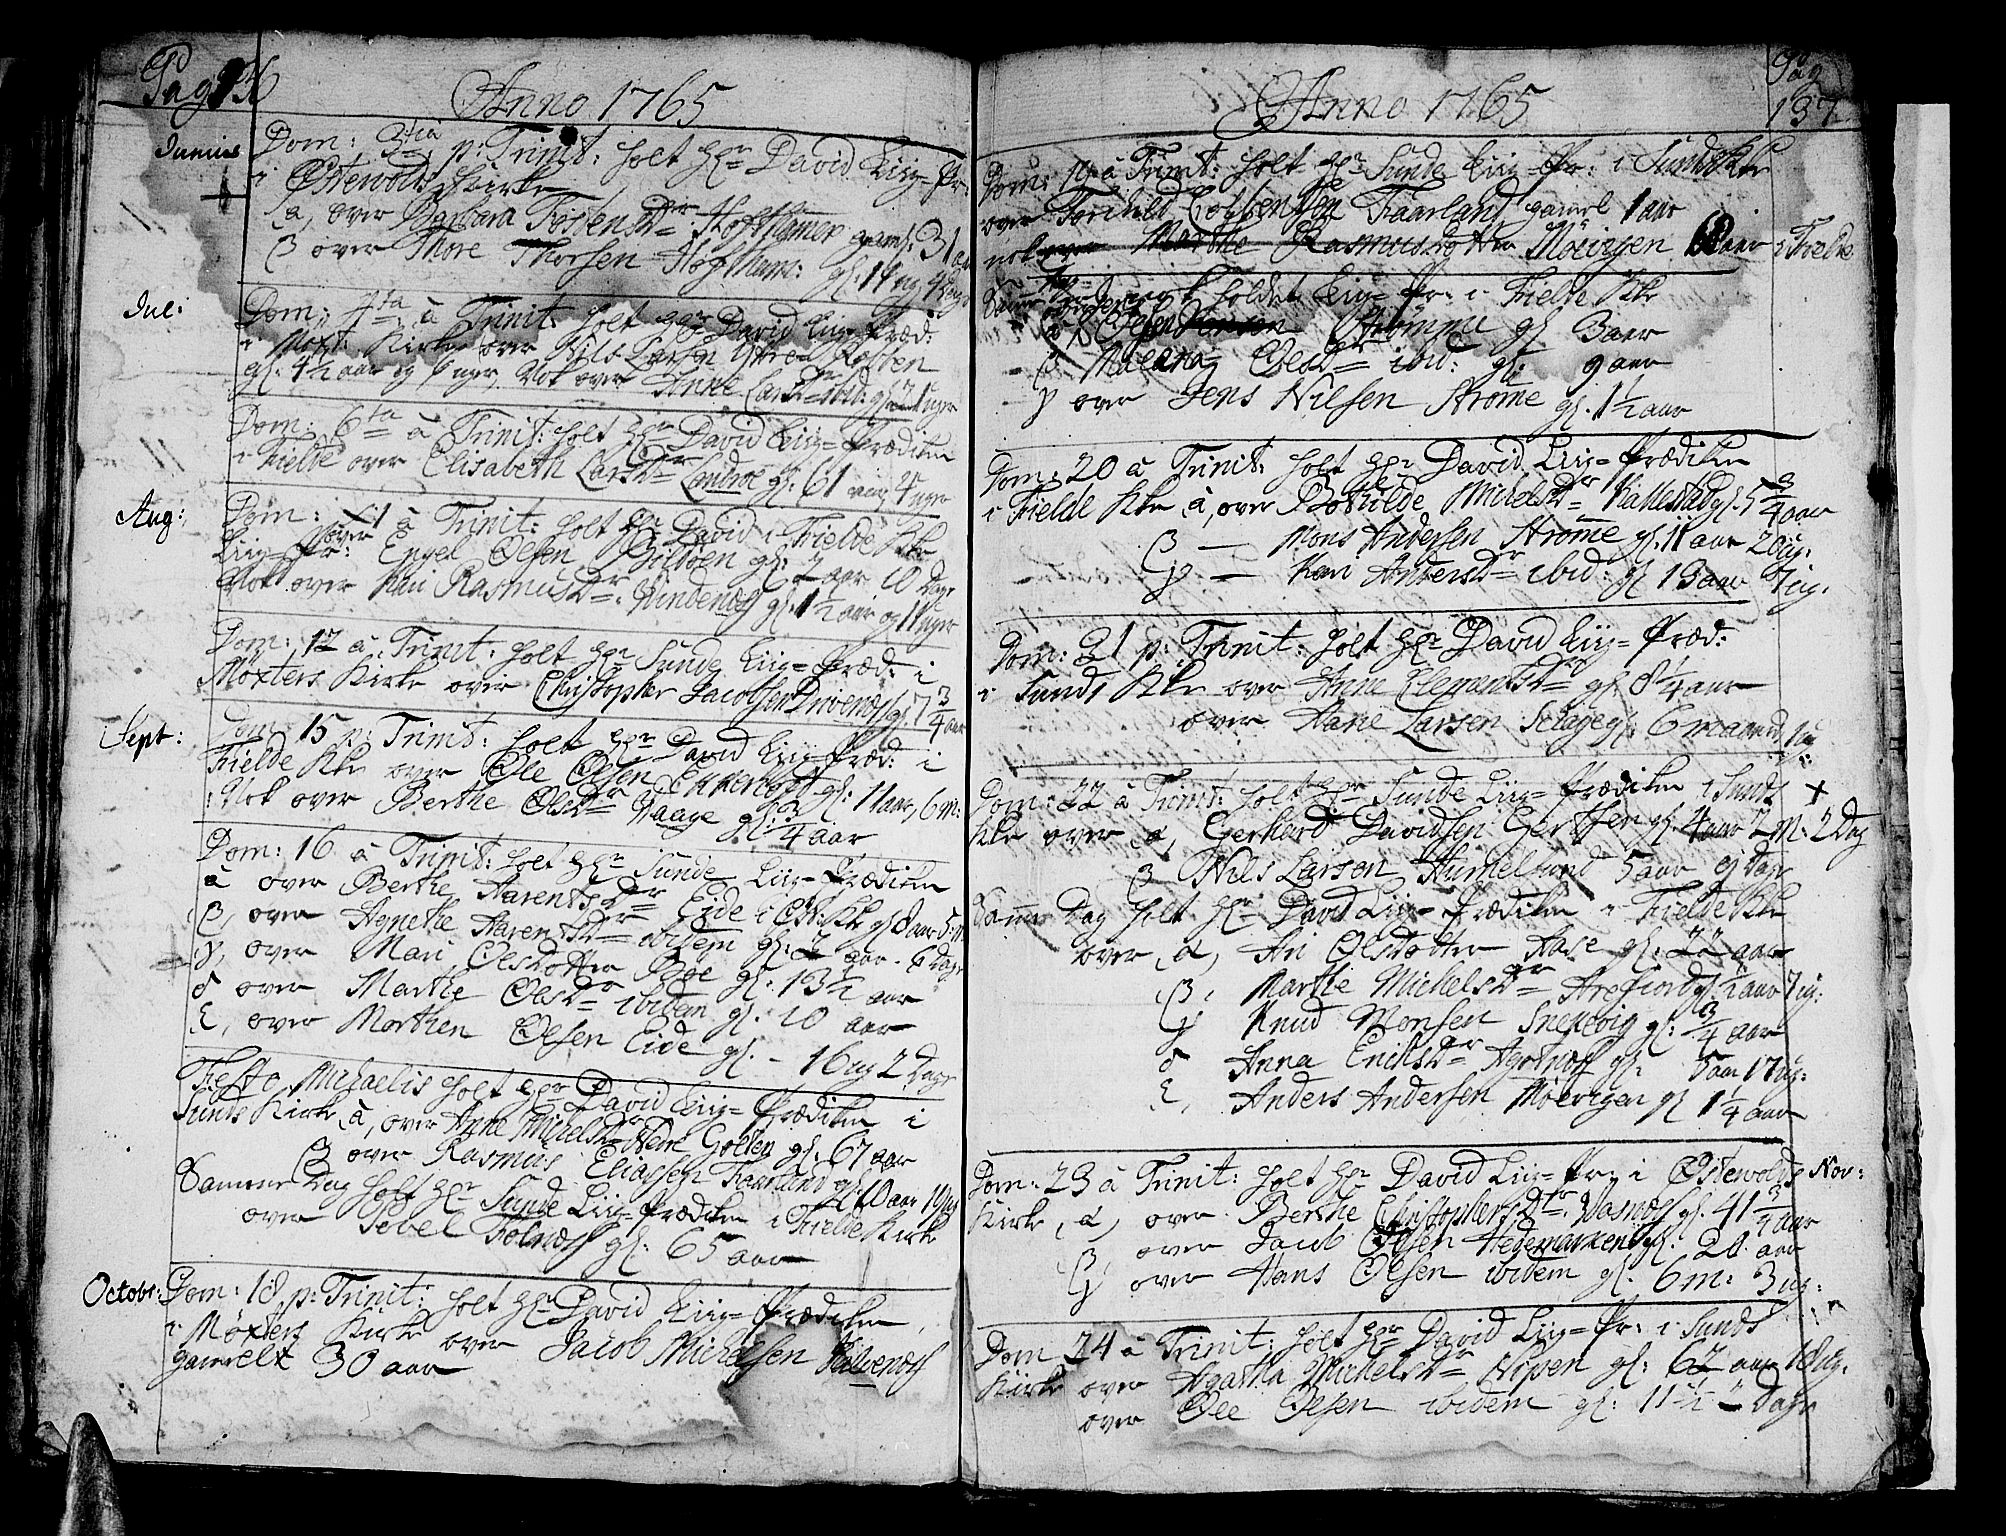 Pag 136
Anno 1765
Junius
Dom: 3tia p: Trinit: holt Hr David Liig-Pr:
i Østevolds Kirke
a, over Barbara TostensDr Høgsthamer gaml: 31 aar
β over Thore Thorsen Høgstham: gl: 14 ug 4 Dage
Jul:
Dom: 4ta à Trinit: holt Hr David Liig-Præd:
i Møxt: Kirke over Nils Larsen Østre Rabben
gl: 4½ aar og uger, Nok over Anne LarsDr ibid: gl: 21 uger
Dom: 6ta à Trinit: holt Hr David Liig-Prædiken
i Fielde over Elisabeth LarsDr Landroe gl: 61 aar 4 uger
Aug:
Dom: 11 à Trinit: holt Hr David i Fielde Kke
Liig-Pr: over Engel Olsen Bildøen gl: 2 aar 10 Dage
Nok over Kari RasmusDr Vindenæs gl: 1½ aar og 11 uger
Dom: 12 à Trinit: holt Hr Sunde Liig-Præd: i
Møxters Kirke over Christopher Jacobsen Drivenæs gl: 7¾ aar
Sept:
Dom: 15 p: Trinit: holt Hr David Liig-Præd: i
Fielde Kke over Ole Olsen gl: 11 aar, 6 m:
Nok over Berthe OlsDr Waage gl: ¾ aar
Dom: 16 à Trinit: holt Hr Sunde Liig-Prædiken
à over Berthe AarentsDr Eide i Kke gl 8 aar 5
β, over Agnethe AarentsDr ibidem gl: aar 6 Dage
γ, over Mari Olsdotter Bøe gl: 13½ aar
δ over Marthe OlsDr ibidem gl. 10 aar
ε, over Morthen Olsen Eide gl. - 16 ug 2 Dage
Festo Michaelis holt Hr David Liig-Prædiken i
Sunds Kirke à, over Anne MichelsDr Nedre Golten gl: 67 aar
β over Rasmus Eliassen Faarland gl: 10 aar 19 ug
Samme Dag holt Hr Sunde Liig-Prædiken i Fielde Kirke
over Sebel Tofnæs gl: 65 aar
Octobr:
Dom: 18 p: Trinit: holt Hr David Liig-Prædiken,
i Møxters Kirke over Jacob Michelsen Kalvenæs
gamelt 30 aar
Pag
137
Anno 1765
Dom: 19 à Trinit: holt Hr Sunde Liig-Pr: i Sunds Kke
over Torchild Faarland gamel 1 aar
nok over Marthe Rasmusdotter Møvigen 68 aar i Fielde
holdet Liig-Pr: i Fielde Kke
à Olsen Strømme gl 3 aar
β Malena OlsDr ibid: gl: 9 aar
γ over Jens Nilsen Strøme gl. 1½ aar
Dom: 20 à Trinit: holt Hr David Liig-Prædiken
i Fielde Kke à, over Bothilde MichelsDr Kallestad gl. 5¾ aar
β — Mons Andersen Strøme gl: 11 aar 20 ug:
γ — Kari AndersDr ibid: gl 13 aar 7 ug.
Dom: 21 p: Trinit: holt Hr David Liig-Præd:
i Sunds Kke over Anne ClementsDr gl. 8¼ aar
over Hans Larsen Selage gl: 6 maaned 1 u
Dom: 22 à Trinit: holt Hr Sunde Liig-Prædiken i Sunds +
Kke over à, Gerhard Davidsen Gerthen gl. 4 aar 2 M: 2 Dag
β Nils Larsen Hummelsund 5 aar 9 Dage
Samme Dag holt Hr David Liig-Prædiken i Fielde Kke
over à, Ari Olsdotter Aase gl: 22 aar
β, Marthe MichelsDr Arefiord gl ½ aar 7 ug:
γ Knud Monsen Snekevig gl: ¾ aar
δ Anna ErichsDr Agotnæs gl: 5 aar 17 ug:
ε, Anders Andersen Møevigen gl 1¼ aar
Nov:
Dom: 23 à Trinit: holt Hr David Liig-Pr. i Østevolds
Kirke, à, over Berthe ChristophersDr Vasnæs gl. 41¾ aar
β over Jacob Olsen Hedemarken gl. 20 aar
γ over Hans Olsen ibidem gl. 6 m: 3 ug:
Dom 24 à Trinit: holt Hr David Liig-Pr: i Sunds
Kirke over Agatha MichelsDr Vipen gl: 62 aar 18 ug.
over Ole Olsen ibidem gl: 11 Dage